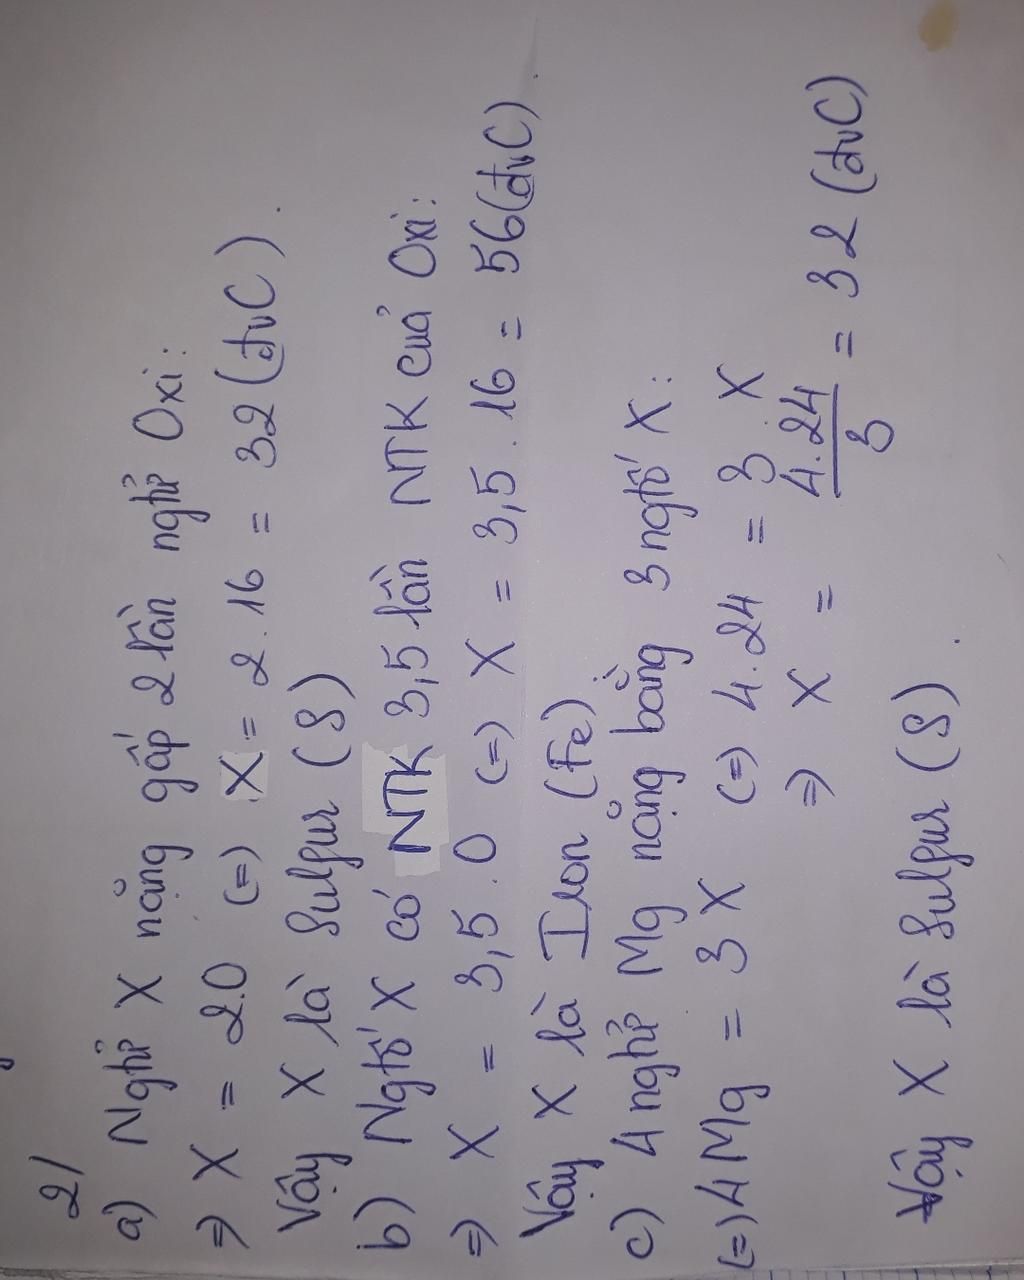 2/
a) Ngtử X nặng gấp 2 lần ngtử Oxi:
=> X = 2.O (=) X = 2.16 = 32 (đvC).
Vậy X là Sulfur (S)
b) Ngtố X có NTK 3,5 lần NTK của Oxi:
=> X = 3,5.O (=) X = 3,5.16 = 56(đvC).
Vậy X là Iron (Fe)
c) 4 ngtử Mg nặng bằng 3 ngtố X:
(=) 4Mg = 3X (=) 4.24 = 3.X
=> X = 4.24/3 = 32 (đvC)
Vậy X là Sulfur (S).